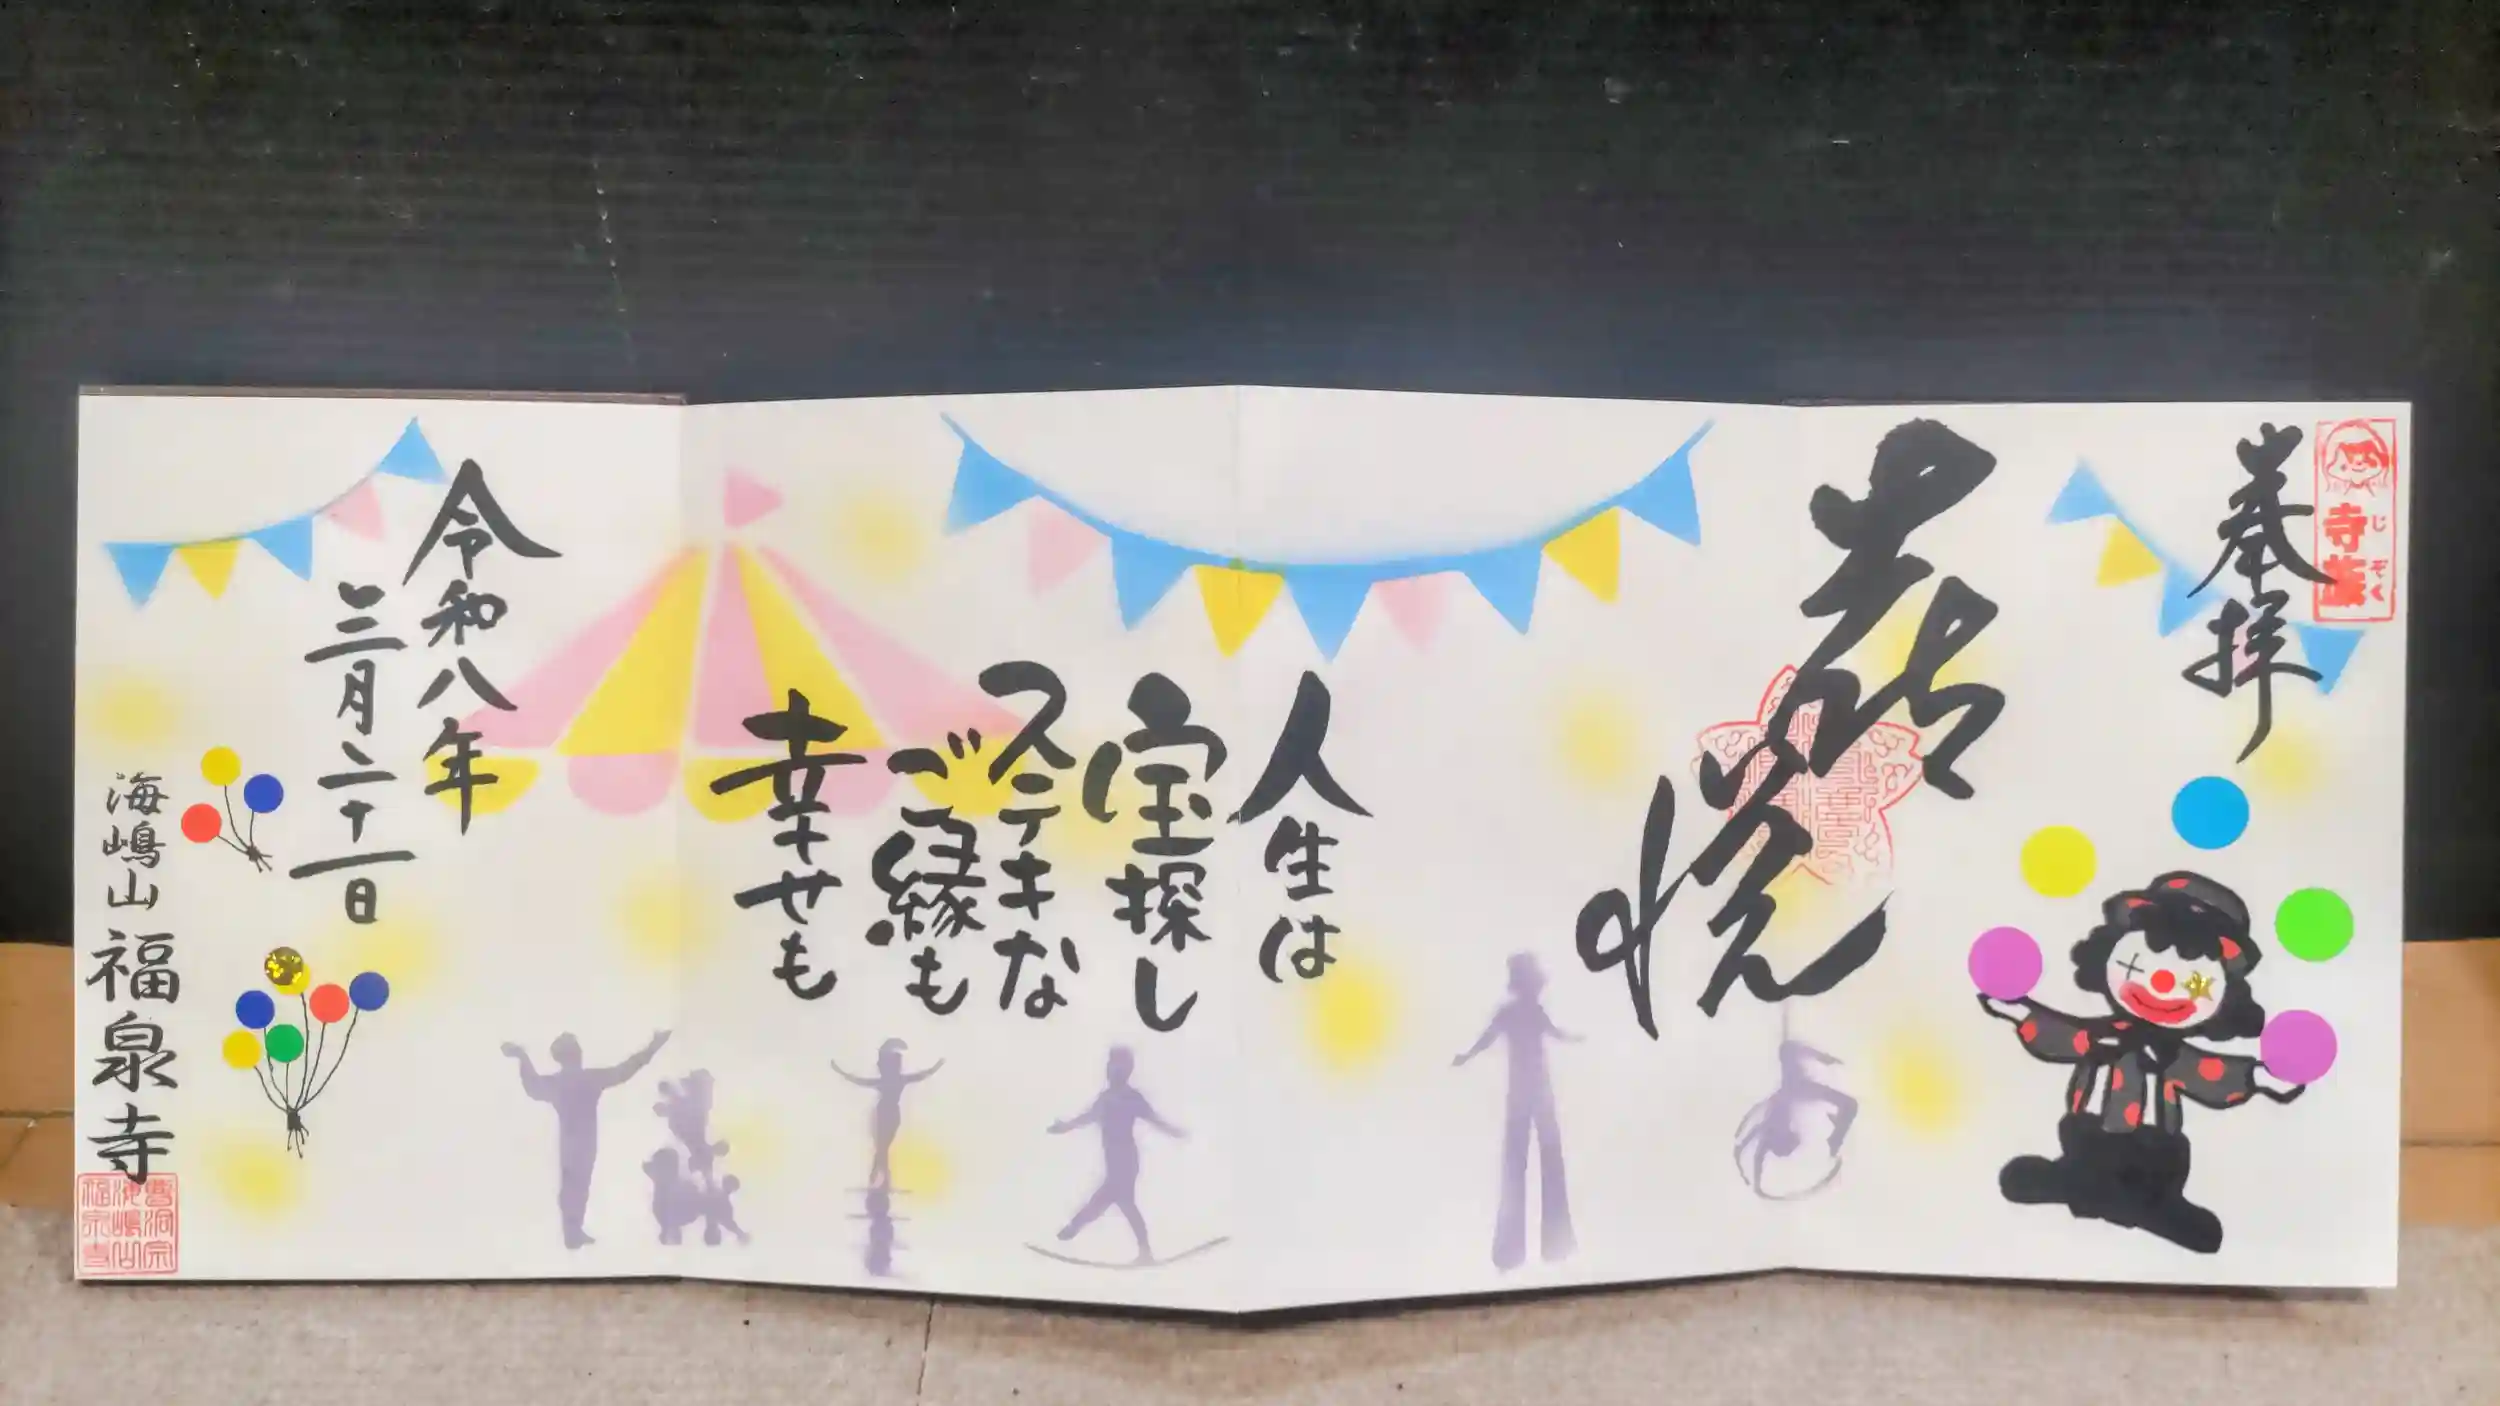 奉拝
寺族
じぞく
喜悦
人生は
宝探し
ステキな
ご縁も
幸せも
令和八年
三月二十一日
海嶋山 福泉寺
曹洞宗
海嶋山
福泉寺